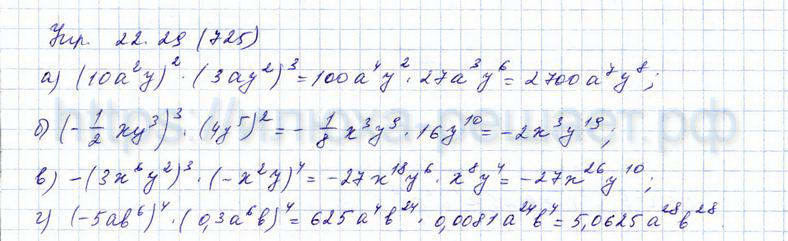 Упр. 22.29 (725)
а) (10a²y)² · (3ay²)³ = 100a⁴y² · 27a³y⁶ = 2700a⁷y⁸;
б) (-1/2 xy³)³ · (4y⁵)² = -1/8 x³y⁹ · 16y¹⁰ = -2x³y¹⁹;
в) -(3x⁶y²)³ · (-x²y)⁴ = -27x¹⁸y⁶ · x⁸y⁴ = -27x²⁶y¹⁰;
г) (-5ab⁶)⁴ · (0,3a⁶b)⁴ = 625a⁴b²⁴ · 0,0081a²⁴b⁴ = 5,0625a²⁸b²⁸.